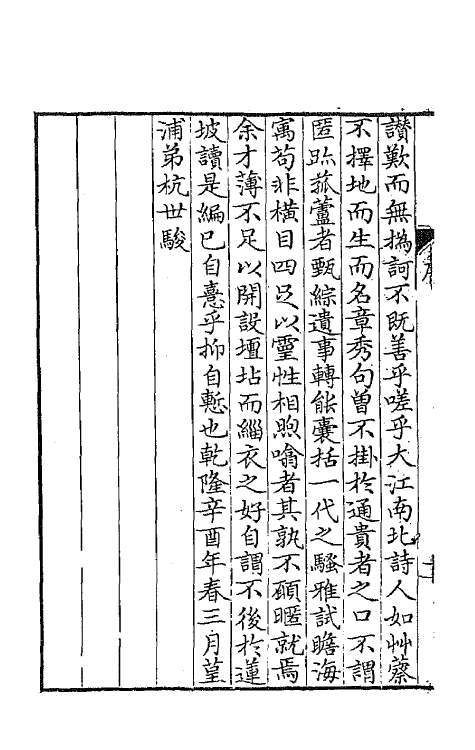 讃歎而無撝訶不既善乎嗟乎大江南北詩人如艸蔡
不擇地而生而名章秀句曽不掛於通貴者之口不謂
匿跡菰蘆者甄綜遺事轉能囊括一代之騷雅試瞻海
寓苟非橫目四足以靈性相煦噏者其孰不願暱就焉
余才薄不足以開設壇坫而緇衣之好自謂不後於蓮
坡讀是編已自憙乎抑自慙也乾隆辛酉年春三月堇
浦弟杭世駿